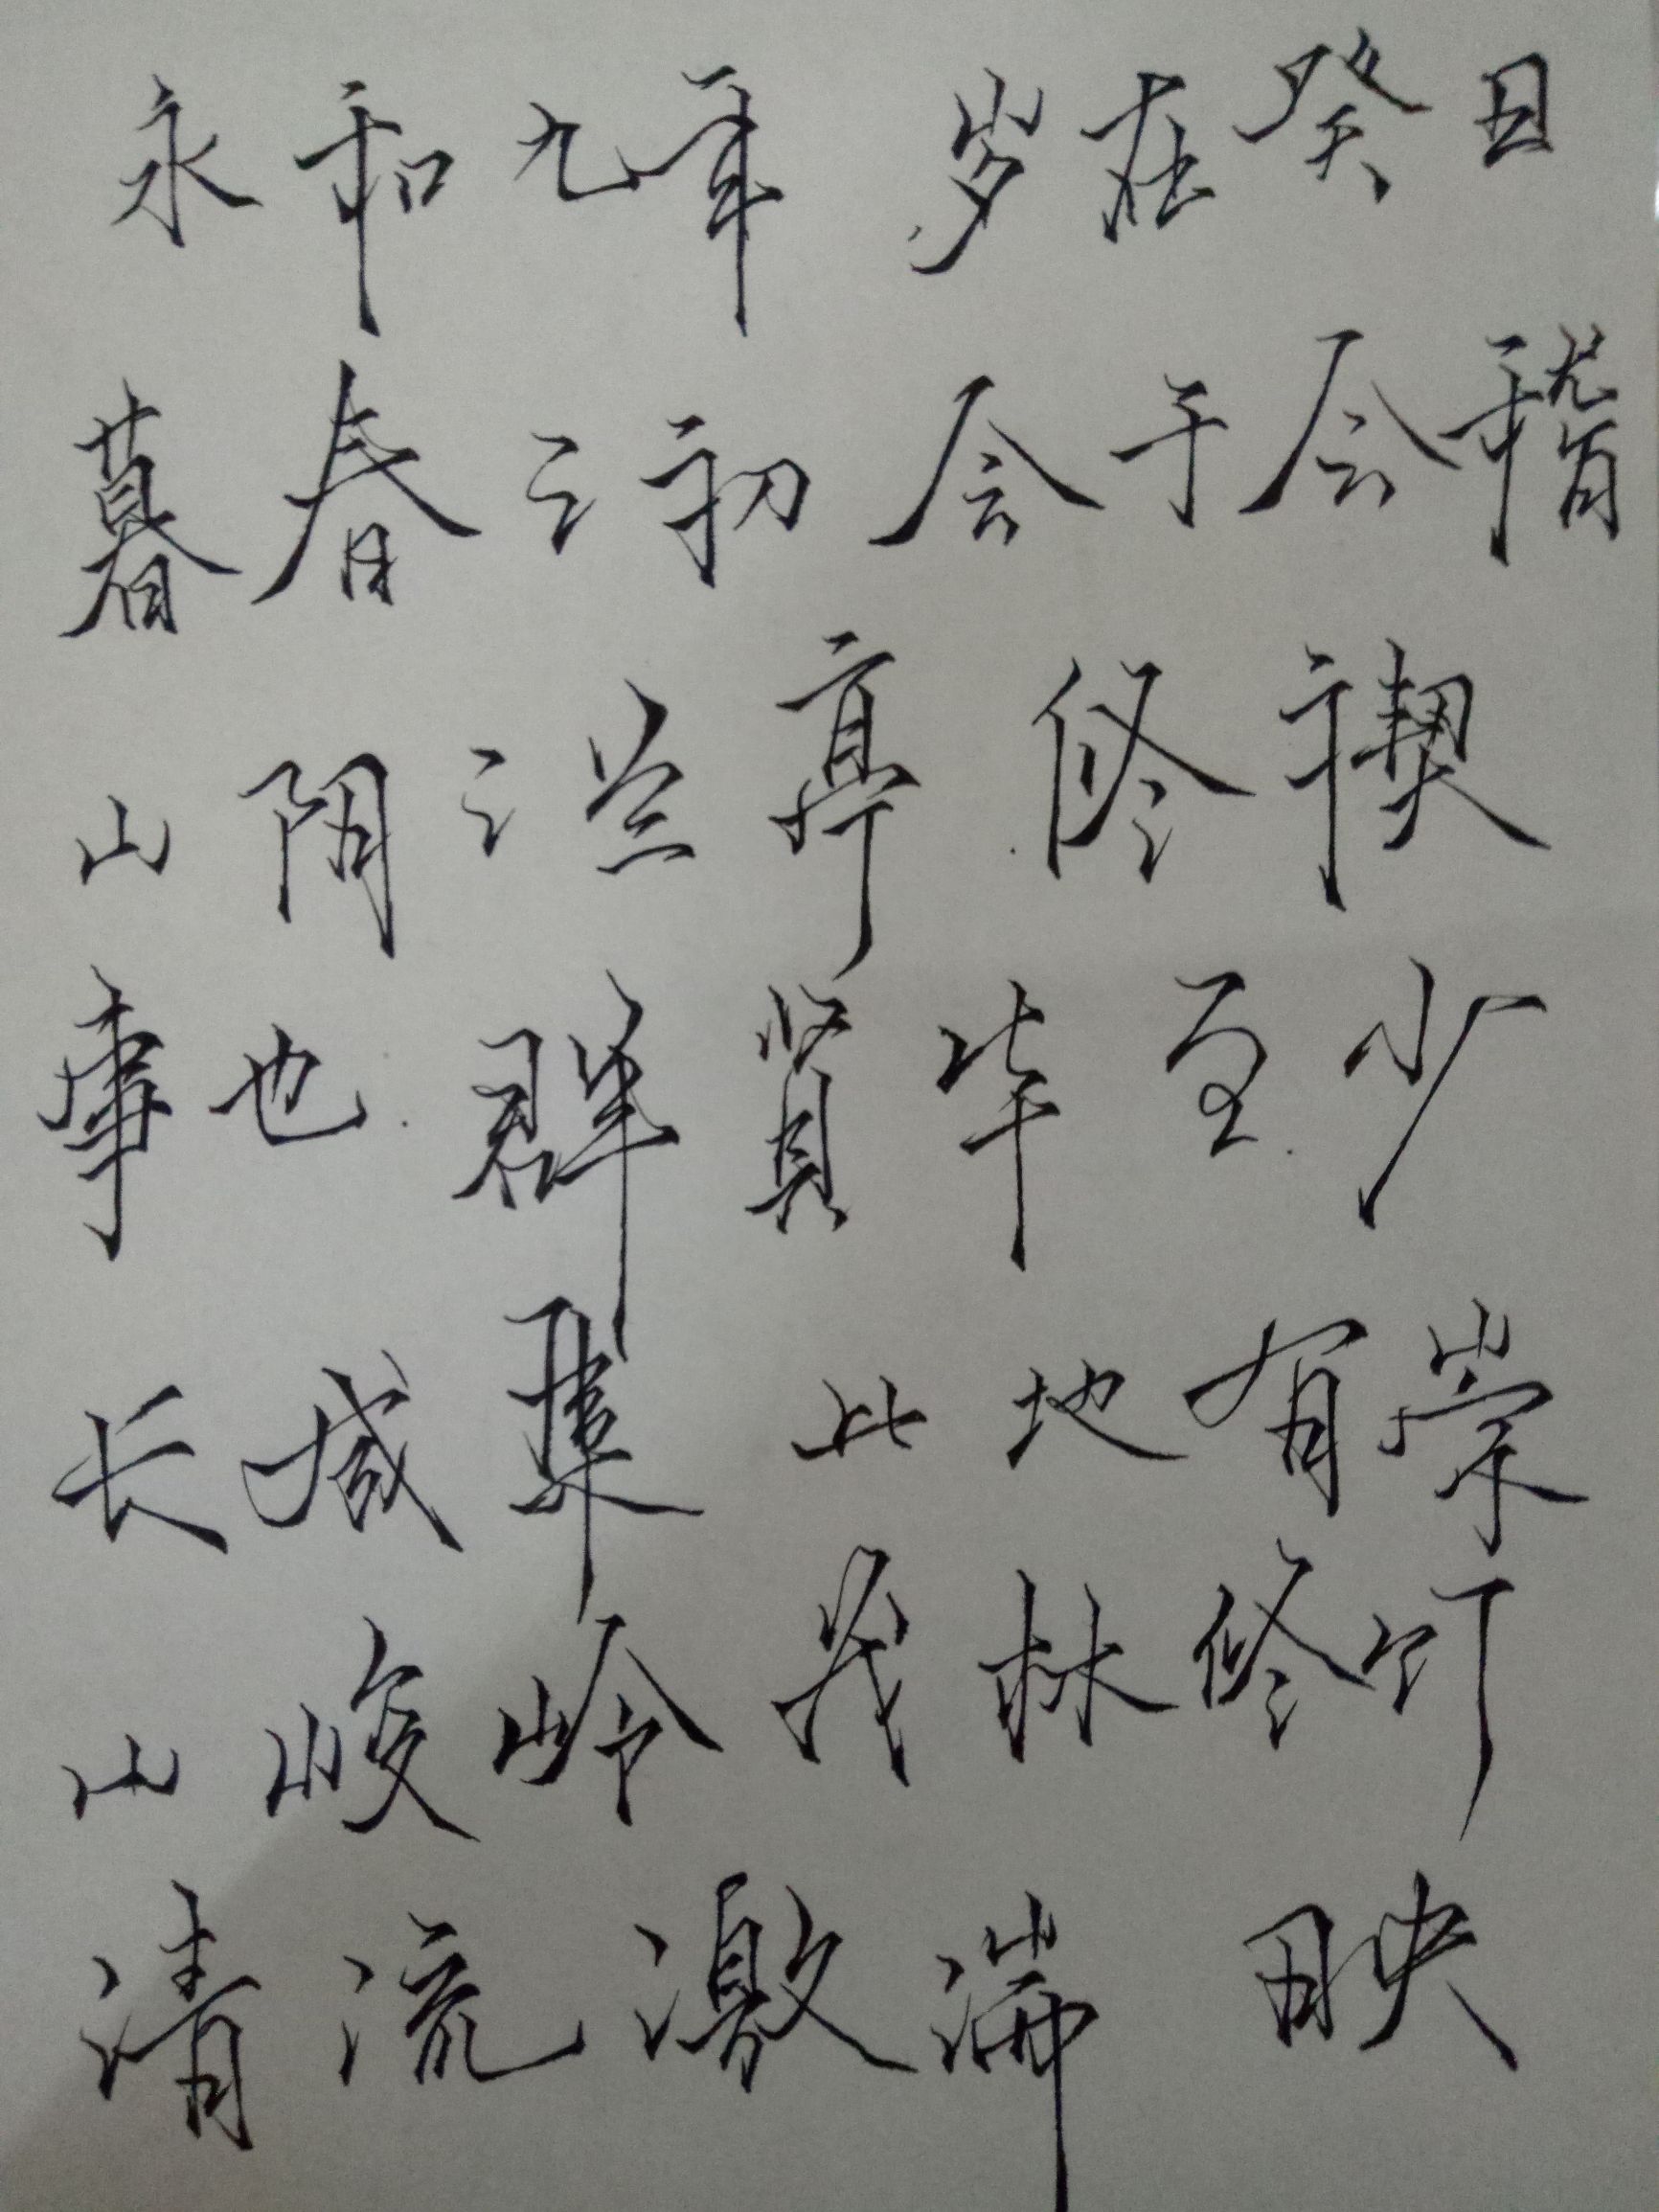 永和九年 岁在癸丑
暮春之初 会于会稽
山阴之兰亭 修禊
事也 群贤毕至少
长咸集 此地有崇
山峻岭 茂林修竹
清流激湍 映